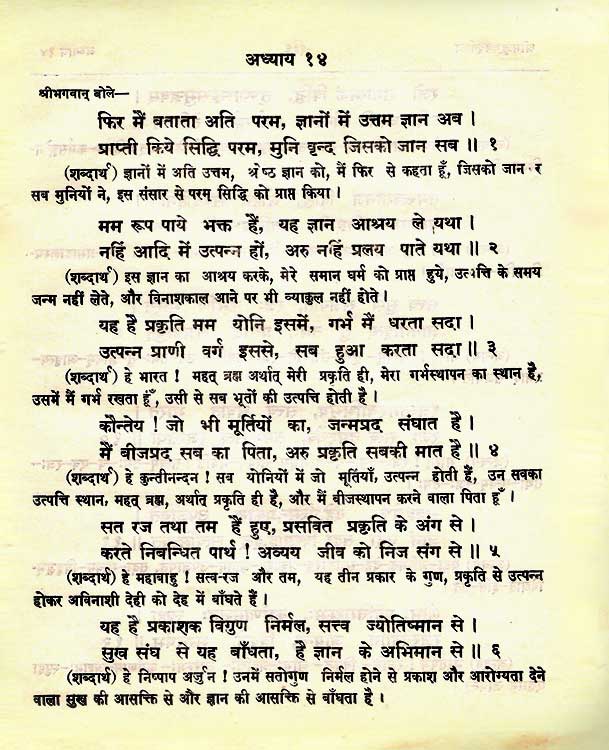 अध्याय १४
श्रीभगवान् बोले—
फिर मैं बताता अति परम, ज्ञानों में उत्तम ज्ञान अब ।
प्राप्ती किये सिद्धि परम, मुनि वृन्द जिसको जान सब ॥ १
(शब्दार्थ) ज्ञानों में अति उत्तम, श्रेष्ठ ज्ञान को, मैं फिर से कहता हूँ, जिसको जान र
सब मुनियों ने, इस संसार से परम् सिद्धि को प्राप्त किया ।
मम रूप पाये भक्त हैं, यह ज्ञान आश्रय ले यथा ।
नहिं आदि में उत्पन्न हों, अरु नहिं प्रलय पाते यथा ॥ २
(शब्दार्थ) इस ज्ञान का आश्रय करके, मेरे समान धर्म को प्राप्त हुये, उत्पत्ति के समय
जन्म नहीं लेते, और विनाशकाल आने पर भी व्याकुल नहीं होते ।
यह है प्रकृति मम योनि इसमें, गर्भ मैं धरता सदा ।
उत्पन्न प्राणी वर्ग इससे, सब हुआ करता सदा ॥ ३
(शब्दार्थ) हे भारत ! महत् ब्रह्म अर्थात् मेरी प्रकृति ही, मेरा गर्भस्थापन का स्थान है,
उसमें मैं गर्भ रखता हूँ, उसी से सब भूतों की उत्पत्ति होती है ।
कौन्तेय ! जो भी मूर्तियों का, जन्मप्रद संघात है ।
मैं बीजप्रद सब का पिता, अरु प्रकृति सबकी मात है ॥ ४
(शब्दार्थ) हे कुन्तीनन्दन ! सब योनियों में जो मूर्तियाँ, उत्पन्न होती हैं, उन सबका
उत्पत्ति स्थान, महत् ब्रह्म, अर्थात प्रकृति ही है, और मैं बीजस्थापन करने वाला पिता हूँ ।
सत रज तथा तम हैं हुए, प्रसवित प्रकृति के अंग से ।
करते निबन्धित पार्थ ! अव्यय जीव को निज संग से ॥ ५
(शब्दार्थ) हे महाबाहु ! सत्व-रज और तम, यह तीन प्रकार के गुण, प्रकृति से उत्पन्न
होकर अविनाशी देही को देह में बाँधते हैं ।
यह है प्रकाशक विगुण निर्मल, सत्त्व ज्योतिष्मान से ।
सुख संघ से यह बाँधता, है ज्ञान के अभिमान से ॥ ६
(शब्दार्थ) हे निष्पाप अर्जुन ! उनमें सतोगुण निर्मल होने से प्रकाश और आरोग्यता देने
वाला सुख की आसक्ति से और ज्ञान की आसक्ति से बाँधता है ।